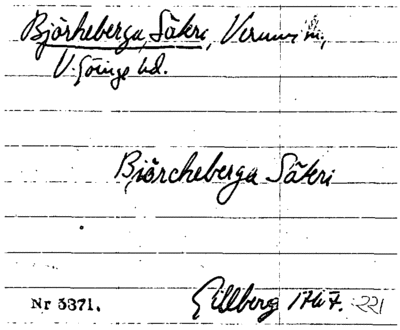 Björkeberga, Säteri, Verums sn,
V. Göinge hd.
Biörcheberga Säteri
Nr 5871. Gillberg 1767. 221